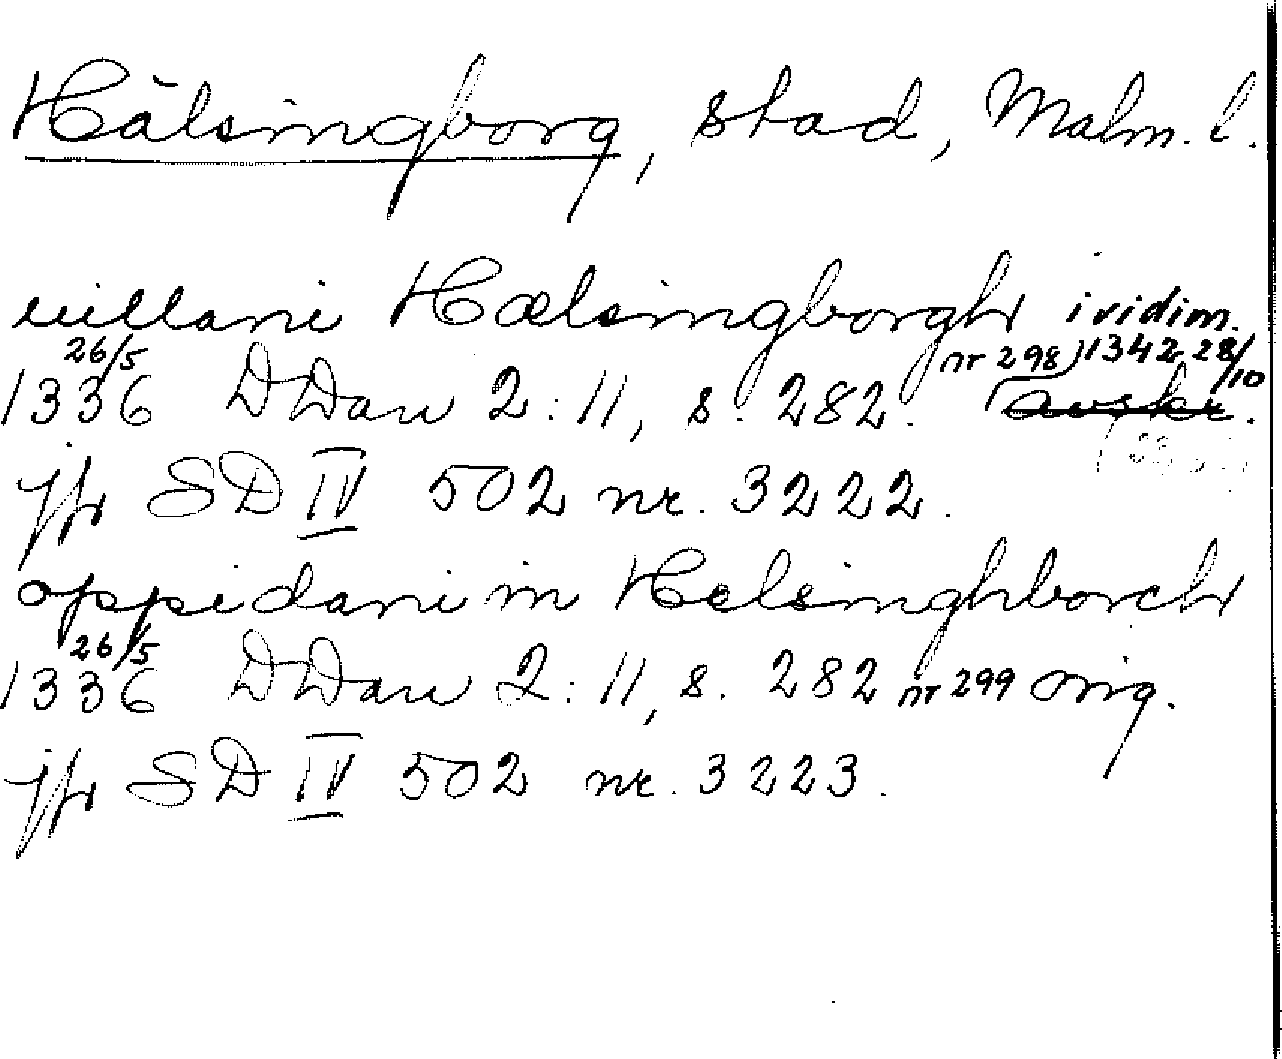 Hälsingborg, stad, Malm. l.
uillani Hælsingborgh i vidim.
26/5 nr 298) 1342 28/10
1336 DDan 2:11, s. 282. avskr.
jfr SD IV 502 nr. 3222.
oppidani in Helsinghborch
26/5
1336 DDan 2:11, s. 282 nr 299 orig.
jfr SD IV 502 nr. 3223.